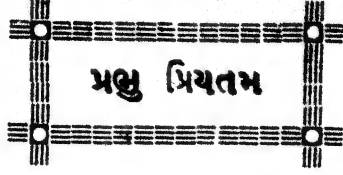 પ્રભુ પ્રિયતમ